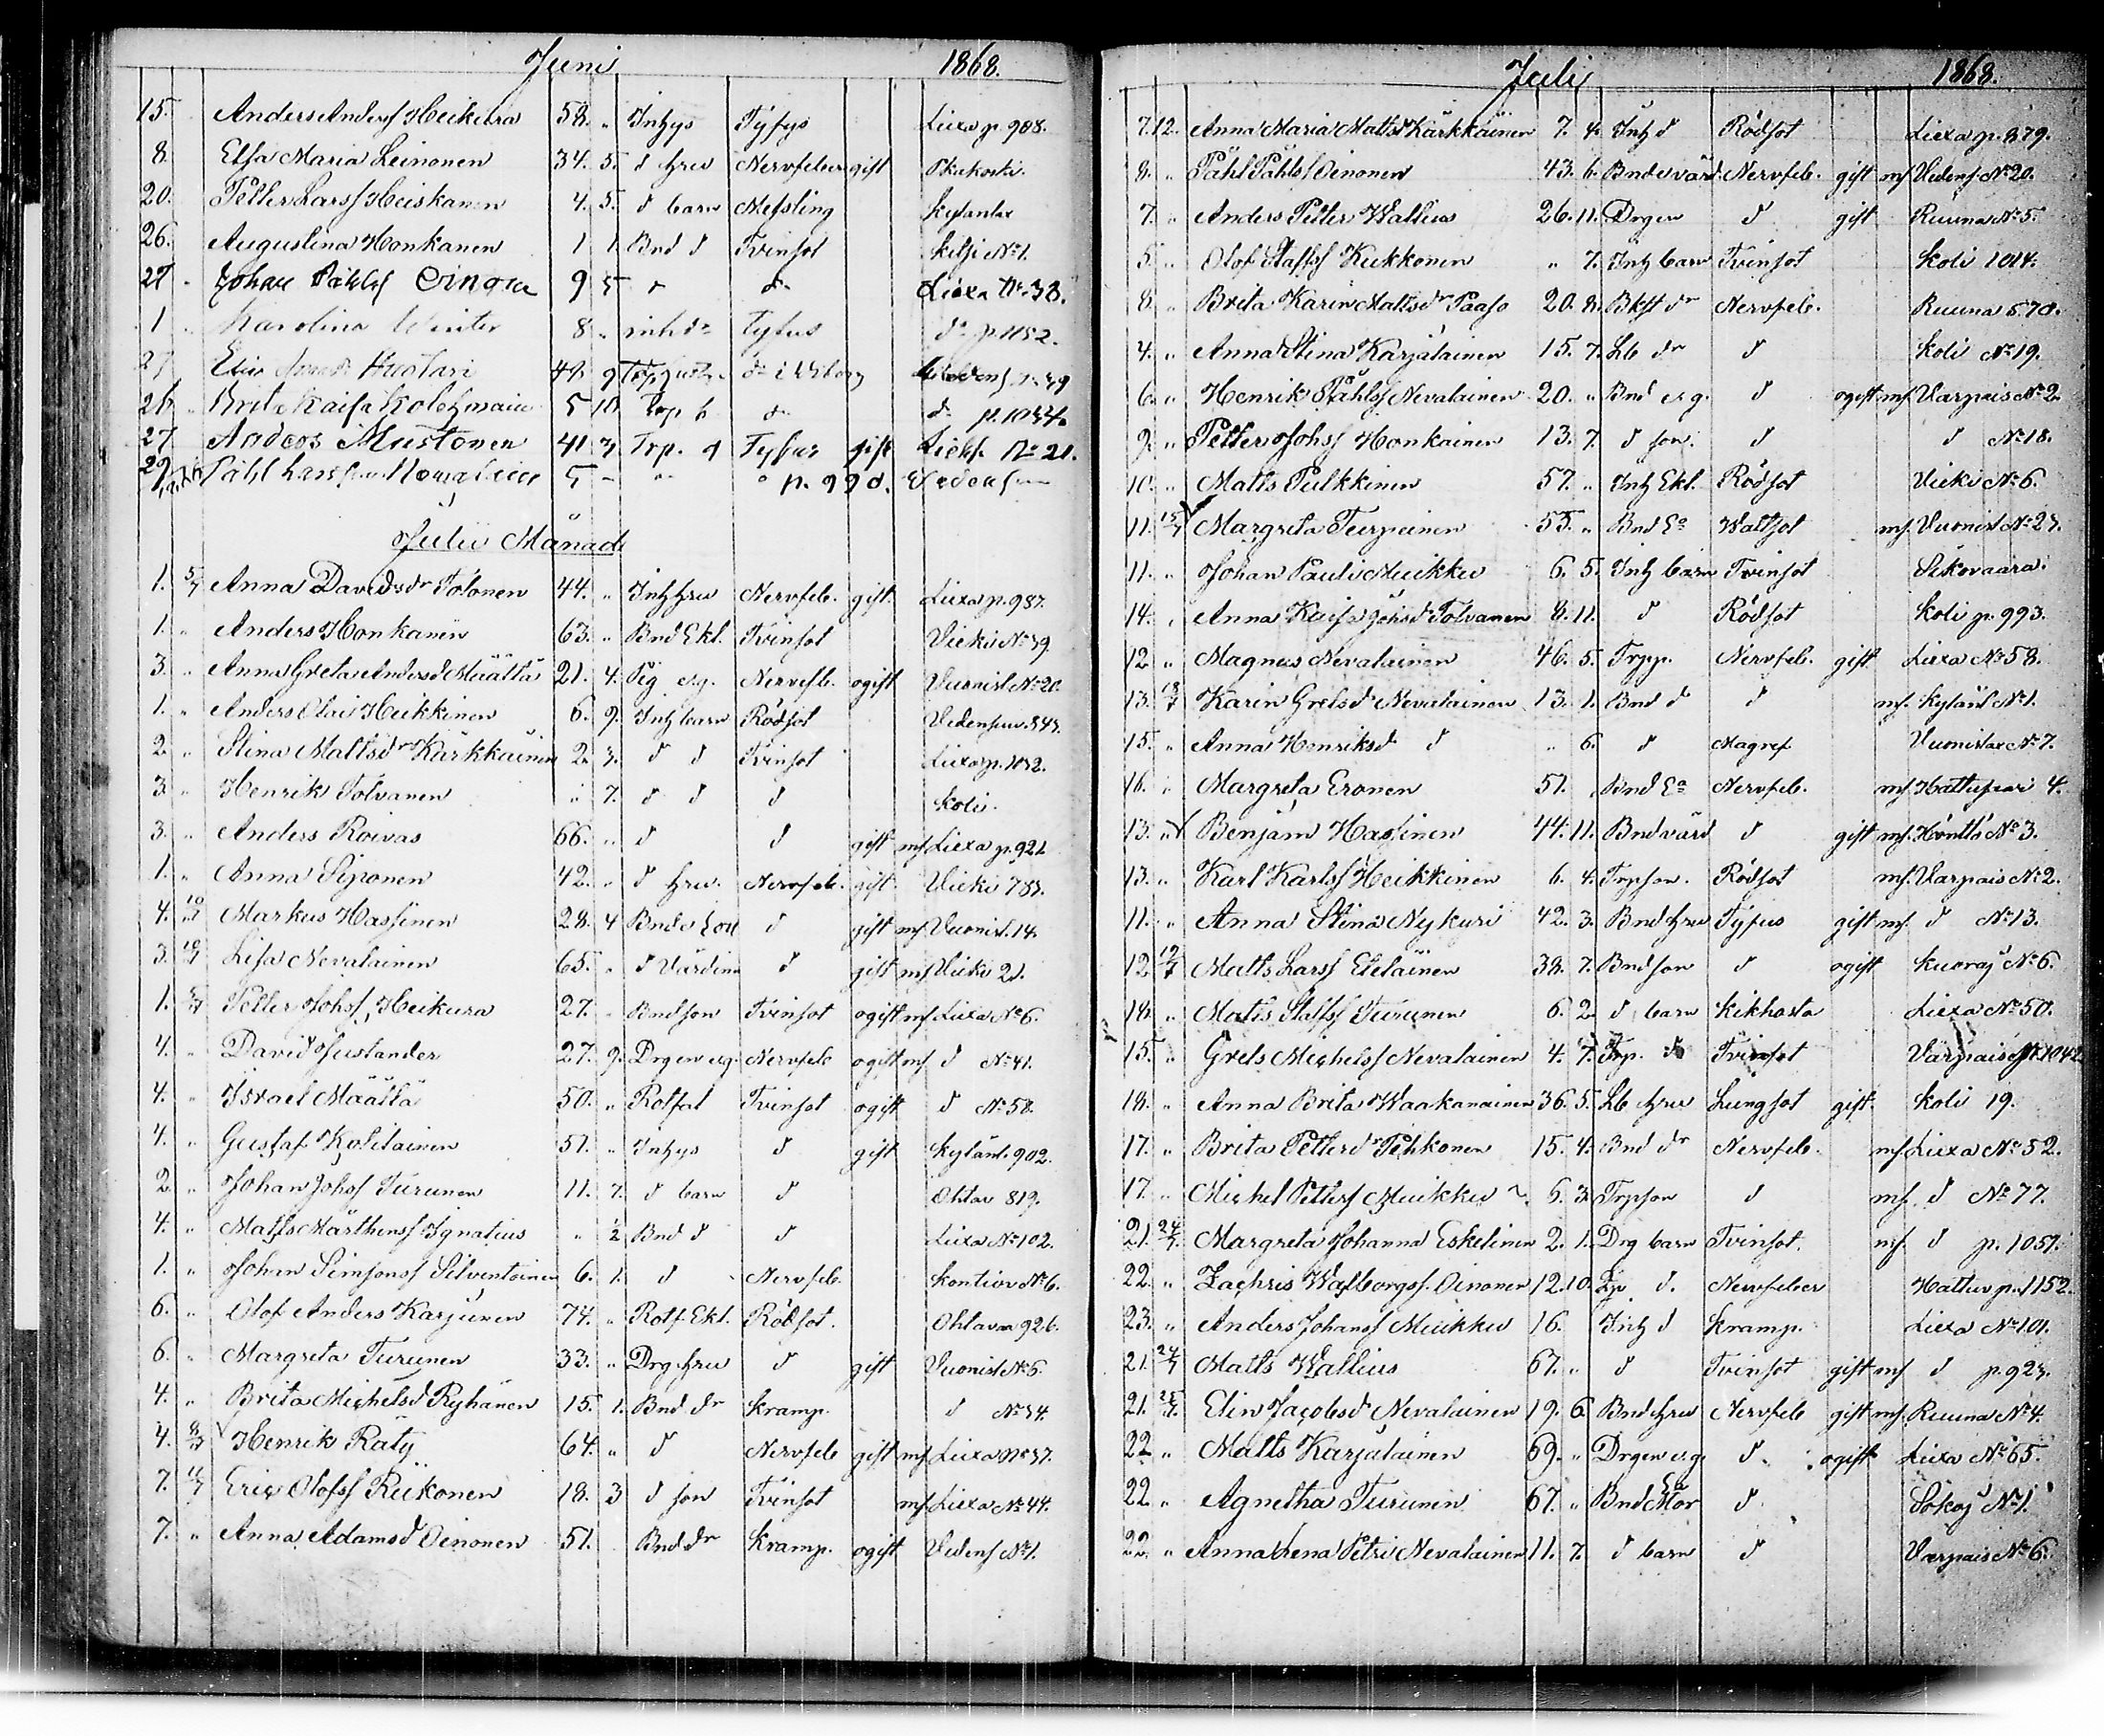 Juni 1868.
15. Anders Anderss Heikura 58. " Inhys Tyfys Lixa p. 908.
8. Elsa Maria Leinonen 34. 5. d hru Nervfeber gift
20. Petter Larss Heiskanen 4. 5. d barn Messling Kylanlax
26. Augustina Honkanen 1 1. Bnd d Tvinsot Kitsi No 1.
27 Johan Påhls Oinonen 9 5 " do Lixa No 38.
1 Karolina Winter 8 " inh do Tyfus do p. 1152.
27 Elin Huotari 49 9
26 Brita Kaisa Kolehmain 5 10 Torp b do do p. 1034.
27 Anders Mustonen 41 3 Trp. d Tyfus gift Lieks. No 21.
29 Påhl Larss Nevalain 5 " " " p. 990.
Julii Månad
1. 5/7 Anna Davidsdr Tolonen 44. " Inh hru Nervfeb. gift Lixa p. 987.
1. " Anders Honkanen 63. " Bnd Ekl. Tvinsot Vieki No 39
3. " Anna Greta Andersd Määttä 21. 4. Pig e.g. Nervfeb. ogift Vuonisl No 20.
1. " Anders Olai Heikkinen 6. 9. Inh barn Rödsot Vidensuu 843.
2. " Stina Mattsdr Kärkkäinen 2. 3. d d Tvinsot Lixa p. 1032.
3. " Henrik Tolvanen " 7. d d d Koli.
3. " Anders Roivas 66. " d d gift mf Lixa p. 921
1. " Anna Siponen 42. " d hru. Nervfeb. gift Vieki 783.
4. 10/7 Markus Hassinen 28. 4 Bnde d gift mf Vuonisl. 14.
3. 10/7 Lisa Nevalainen 65. " d Värdin d gift mf Vieki 21.
1. 5/7 Petter Johss Heikura 27. " Bndson Tvinsot ogift mf Lixa No 6.
4. " David Justander 27. 9. Drgen e.g. Nervfeb ogift mf d No 41.
4. " Israel Määttä 50. " Rotfat Tvinsot ogift d No 58.
4. " Gustaf Kolilainen 51. " Inhys d gift Kylänl. 902.
2 " Johan Johss Turunen 11. 7. d barn d Ohtav 819.
4. " Matts Mårthenss Ignatius " 1/2 Bnd d d Lixa No 102.
1. " Johan Simonss Silventoinen 6. 1. d Nervfeb. Kontiov No 6.
6. " Olof Anders Karjunen 74. " Rotf. Ekl. Rödsot. Ohtavaa 926.
6. " Margreta Turunen 33. " Drg hru d gift Vuonisl No 6.
4. " Brita Michelsd Ryhänen 15. 1. Bnd dr Kramp. d No 34.
4. 8/7 Henrik Räty 64. " d Nervfeb gift mf Lixa No 37.
7. 11/7 Eric Olofss Riikonen 18. 3 d son Tvinsot mf Lixa No 44.
7. " Anna Adamsd Oinonen 51. Bnd dr Kramp. ogift Videns No 1.
Juli 1868.
7. 12. Anna Maria Mattsd Kärkkäinen 7. 4. Inh d Rödsot Lixa p. 879.
8. " Påhl Påhlss Oinonen 43. 6. Bndevärd. Nervfeb. gift mf Videns No 20.
7. " Anders Petter Wallius 26. 11. Drgen d gift Ruuna No 5.
5. " Olof Staffss Kukkonen " 7. Inh barn Tvinsot Koli 1014.
8. " Brita Karin Mattsdr Paaso 20. 8. dr Nervfeb. Ruuna 570.
4. " Anna Stina Karjalainen 15. 7. Lb dr d Koli No 19.
6. " Henrik Påhlss Nevalainen 20. " Bnd e.g. d ogift mf Varpais No 2.
9. " Petter Johss Honkainen 13. 7. d son. d d No 18.
10. " Matts Pulkkinen 57. " Inh Ekl. Rödsot Vieki No 6.
11. 15/7 Margreta Turpeinen 55. " Bnd Ea Wattsot mf. Vuonisl No 27.
11. " Johan Pauli Muikku 6. 5. Inh barn Tvinsot Sikovaara.
14. " Anna Kaisa Johsd Tolvanen 8. 11. d Rödsot Koli p. 993.
12 " Magnus Nevalainen 46. 5. Trpp. Nervfeb. gift Lixa No 58.
13. 18/7 Karin Gretsd Nevalainen 13. 1. Bnd d d mf. Kylänl No 1.
15. " Anna Henriksd d " 6. d Magref Vuonislax No 7.
16. " Margreta Eronen 51. Bnd Ea Nervfeb. mf. Hattupar 4.
13. " Benjam Hassinen 44. 11. Bndvärd d gift mf. Höntto No 3.
13. " Karl Karlss Heikkinen 6. 4. Trpson. Rödsot mf. Varpais No 2.
11. " Anna Stina Nykuri 42. 3. Bnd hru Tyfus gift mf. d No 13.
12 19/7 Matts Larss Eteläinen 38. 7. Bndson d ogift Kuoraj No 6.
18. " Matts Staffss Turunen 6. 2 d barn Kikhosta Lixa No 50.
15. " Grels Michelss Nevalainen 4. 7. Trp. do Tvinsot Varpais p. 1042
18. " Anna Brita Waakanainen 36. 5. Lb hru Lungsot gift Koli 19.
17. " Brita Pettersdr Pehkonen 15. 4. Bnd dr Nervfeb. mf. Lixa No 52.
17. " Michel Petterss Muikku 6. 3. Trpson d mf. d No 77.
21. 24/7. Margreta Johanna Eskelinen 2. 1. Drg barn Tvinsot. mf. d p. 1051.
22. " Zachris Walborgss. Oinonen 12. 10. d. Nervfeber Hattuv p. 1152.
23. " Anders Johanss Muikku 16. Inh d Kramp. Lixa No 101.
21. 24/7 Matts Wallius 67. " d Tvinsot gift mf d p. 923.
21. 25/7. Elin Jacobsd Nevalainen 19. 6 Bnd hru Nervfeb gift mf. Ruuna No 4.
22 " Matts Karjalainen 69. " Drgen e.g. d. ogift Lixa No 65.
22 " Agnetha Turunen 67. " Bnd Mor d Sokoj No 1.
22 " Anna Lena Petri Nevalainen 11. 7. d barn d Varpais No 6.